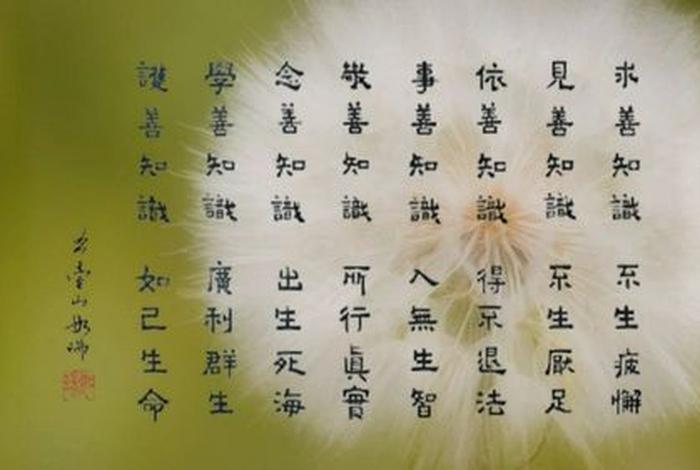 求善知識 不生疲懈
見善知識 不生厭足
依善知識 得不退法
事善知識 入無生智
敬善知識 所行真實
念善知識 出生死海
學善知識 廣利群生
護善知識 如己生命
五臺山妙瑞